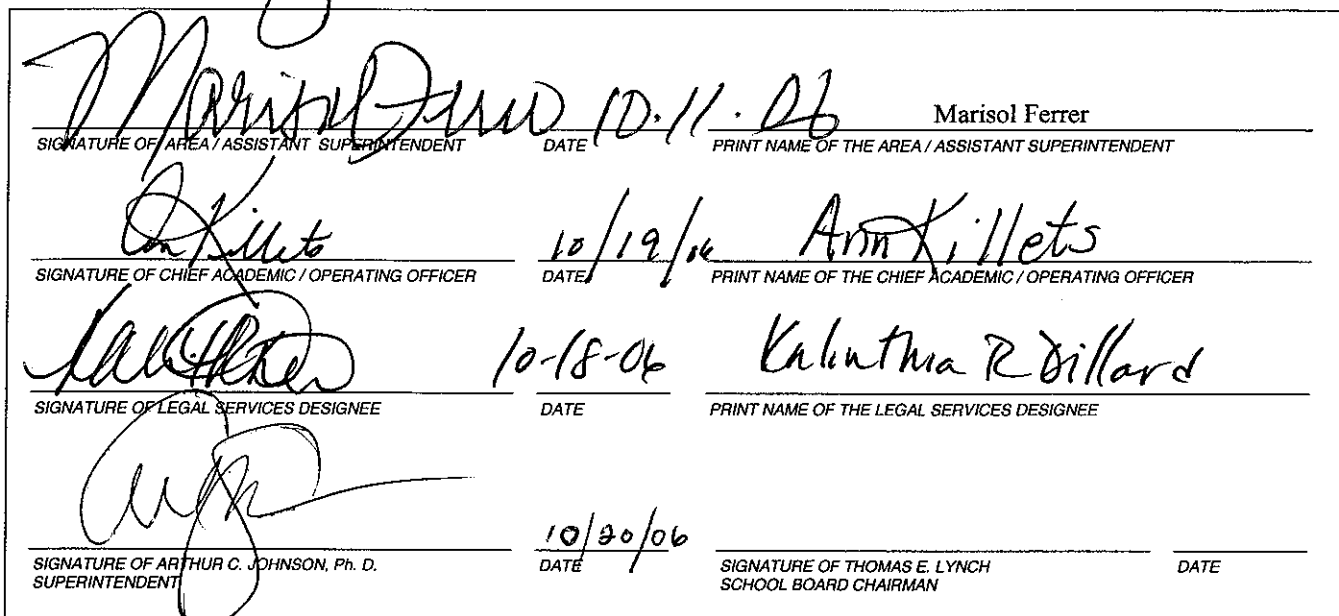 Marisol Ferrer 10.11.06 Marisol Ferrer
SIGNATURE OF AREA / ASSISTANT SUPERINTENDENT DATE PRINT NAME OF THE AREA / ASSISTANT SUPERINTENDENT
Ann Killets 10/19/06 Ann Killets
SIGNATURE OF CHIEF ACADEMIC / OPERATING OFFICER DATE PRINT NAME OF THE CHIEF ACADEMIC / OPERATING OFFICER
10-18-06 Kalinthia R Dillard
SIGNATURE OF LEGAL SERVICES DESIGNEE DATE PRINT NAME OF THE LEGAL SERVICES DESIGNEE
10/20/06
SIGNATURE OF ARTHUR C. JOHNSON, Ph. D. DATE SIGNATURE OF THOMAS E. LYNCH DATE
SUPERINTENDENT SCHOOL BOARD CHAIRMAN